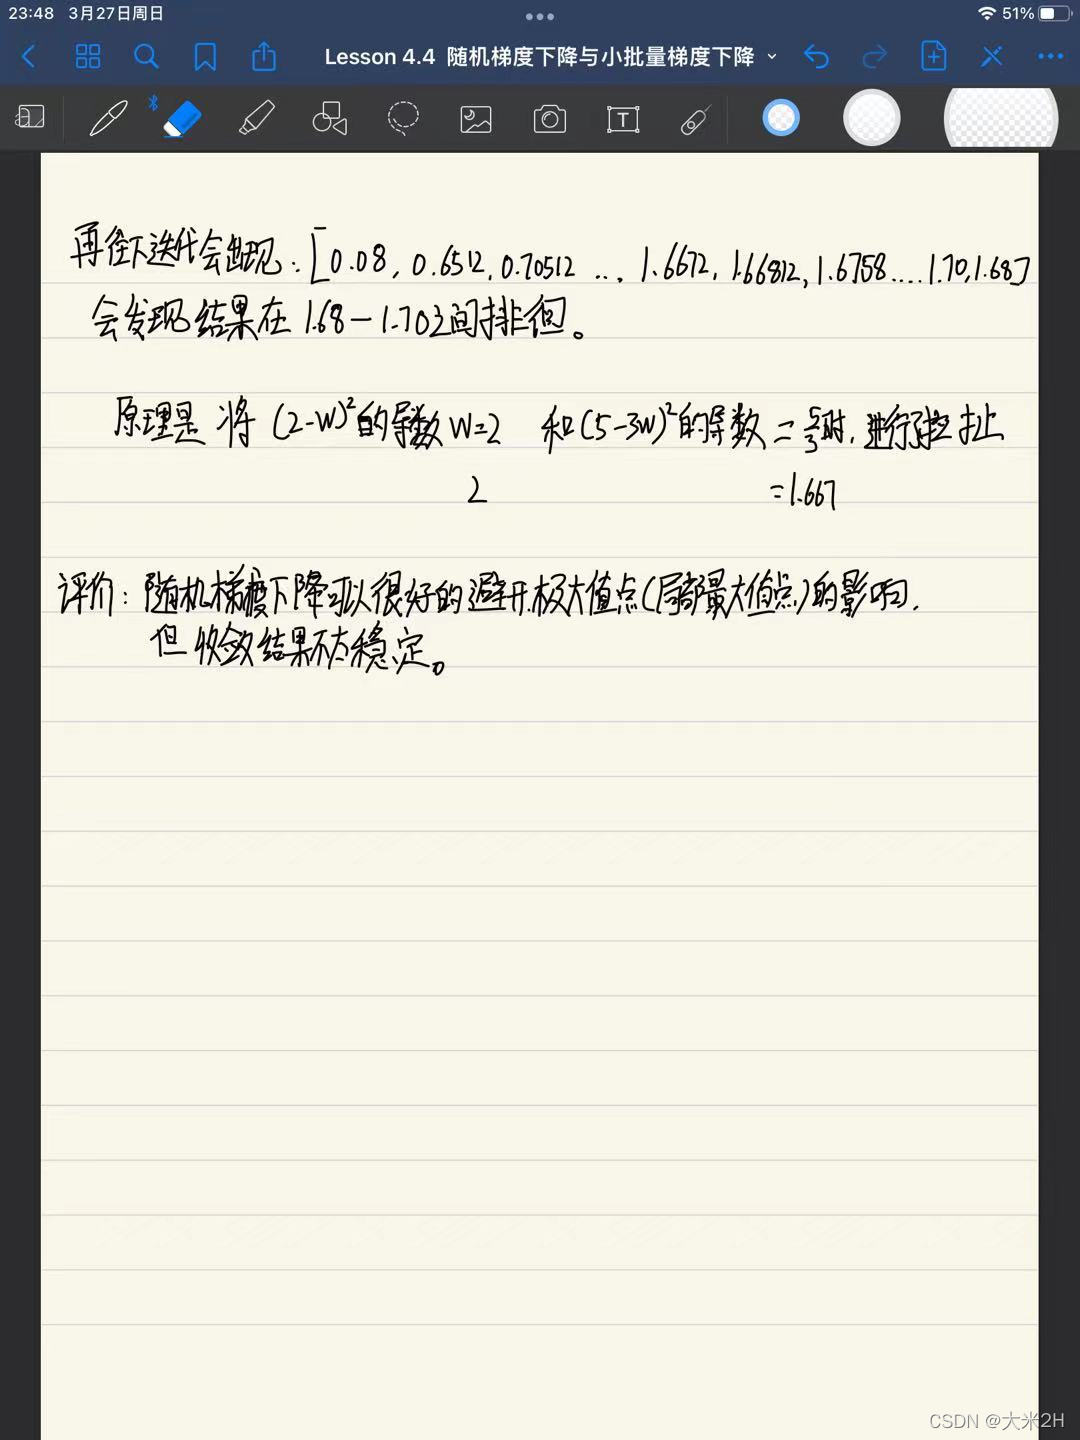 23:48 3月27日周日
51%
Lesson 4.4 随机梯度下降与小批量梯度下降
T
再往下迭代会出现:[0.08, 0.6512, 0.70512 ..., 1.6672, 1.66812, 1.6758....1.70,1.68]
会发现结果在 1.68-1.70之间徘徊。
原理是 将 (2-W)²的导数W=2 和(5-3W)²的导数=5/3时,进行拉扯
2 =1.667
评价:随机梯度下降可以很好的避开极大值点(局部最大值点)的影响,
但收敛结果不太稳定。
CSDN @大米2H